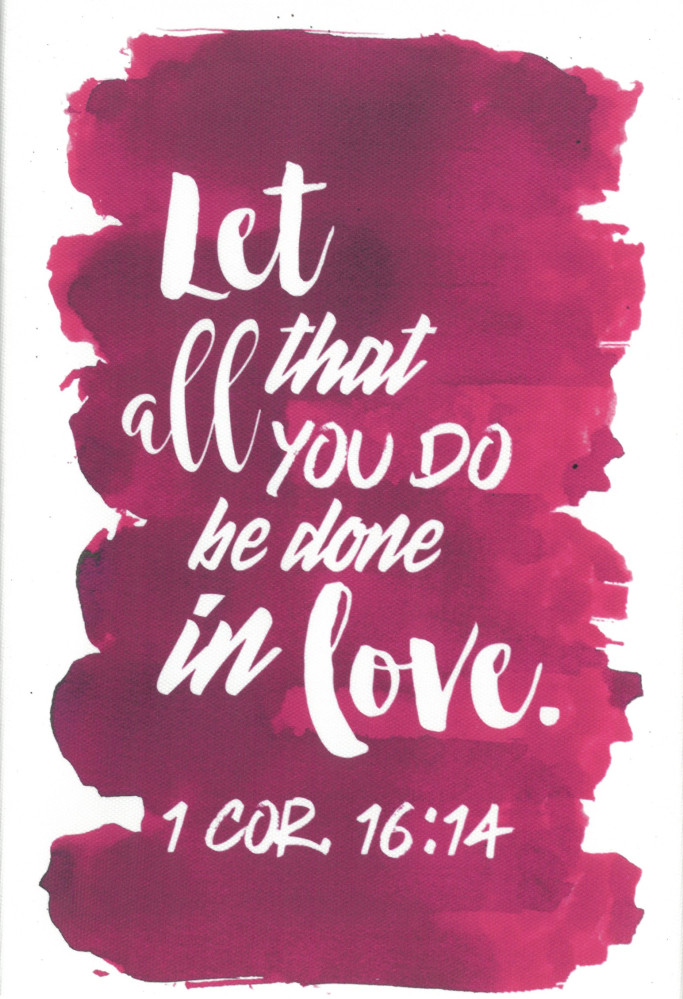 Let
all that
YOU DO
be done
in love.
1 COR. 16:14